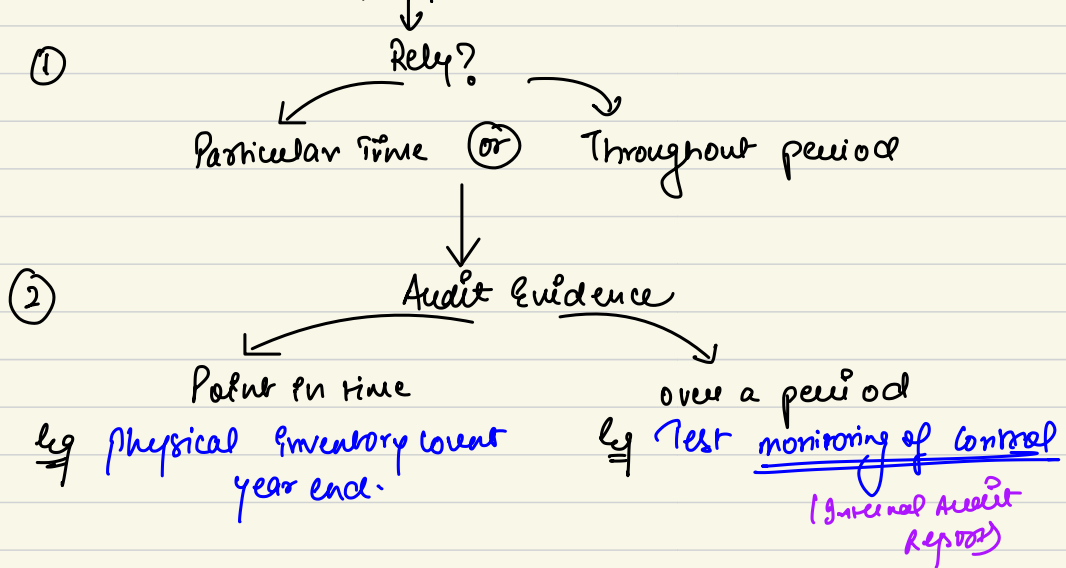 ①
Rely?
Particular Time or Throughout period
②
Audit Evidence
Point in time over a period
eg Physical inventory count eg Test monitoring of control
year end.
(Internal Audit
Report)